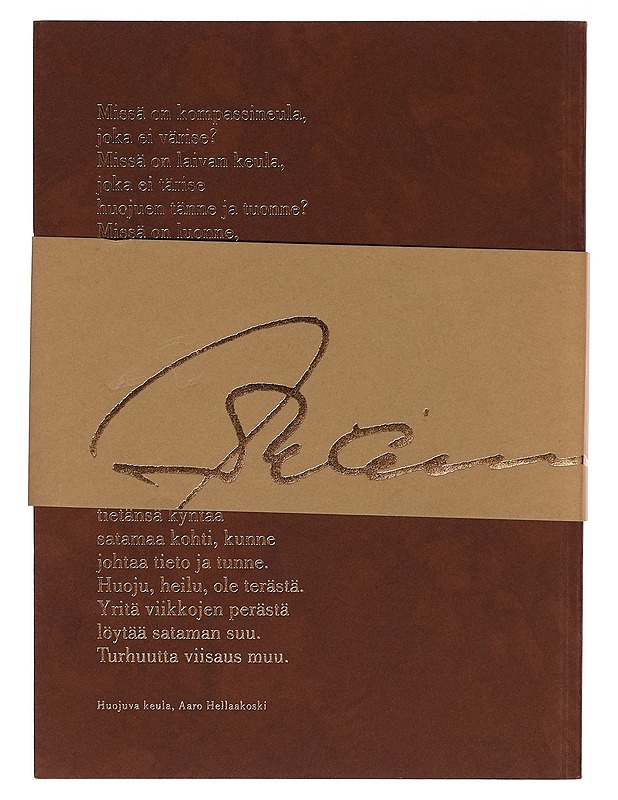 Missä on kompassineula,
joka ei värise?
Missä on laivan keula,
joka ei tärise
huojuen tänne ja tuonne?
Missä on luonne,
tietänsä kyntää
satamaa kohti, kunne
johtaa tieto ja tunne.
Huoju, heilu, ole terästä.
Yritä viikkojen perästä
löytää sataman suu.
Turhuutta viisaus muu.
Huojuva keula, Aaro Hellaakoski